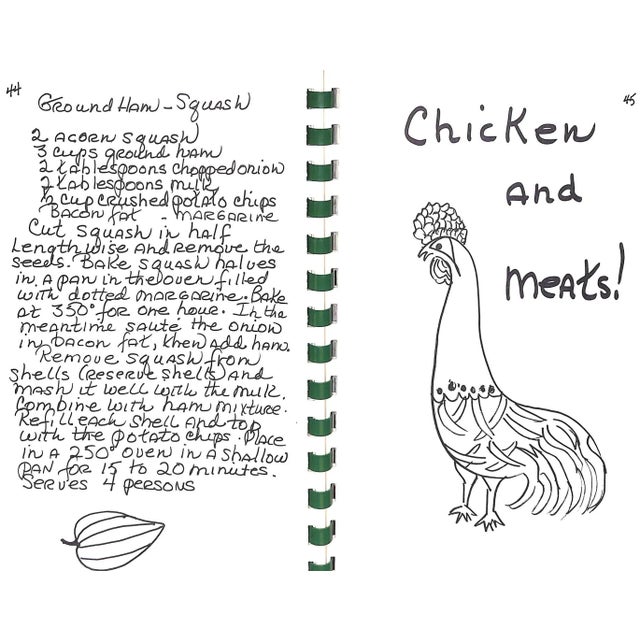 44
Ground Ham - Squash
2 acorn squash
3 cups ground ham
2 tablespoons chopped onion
2 tablespoons milk
1/2 cup crushed potato chips
Bacon fat - margarine
Cut squash in half
lengthwise and remove the
seeds. Bake squash halves
in a pan in the oven filled
with dotted margarine. Bake
at 350° for one hour. In the
meantime sauté the onion
in bacon fat, then add ham.
Remove squash from
shells (reserve shells) and
mash it well with the milk.
Combine with ham mixture.
Refill each shell and top
with the potato chips. Place
in a 250° oven in a shallow
pan for 15 to 20 minutes.
Serves 4 persons
45
Chicken
and
meats!